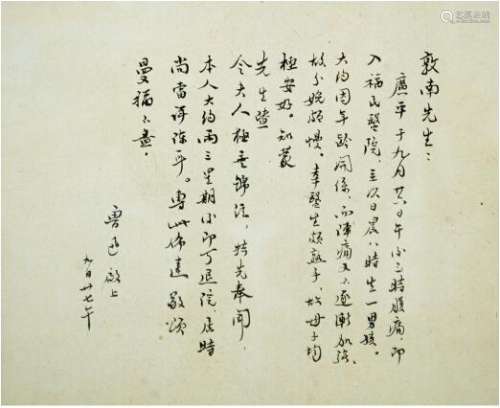 敦南先生：
廣平于九月廿六日午後三時腹痛，即
入福民醫院，至次日晨八時生一男孩。
大約因年齡關係，而陣痛又不逐漸加強，
故分娩頗慢。幸醫生頗熟手，故母子均
極安好。知蒙
先生暨
令夫人極垂錦注，特先奉聞。
本人大約兩三星期後即可退院，屆時
尚當詳陳耳。專此佈達，敬頌
曼福不盡。
魯迅 啟上
九月廿七午